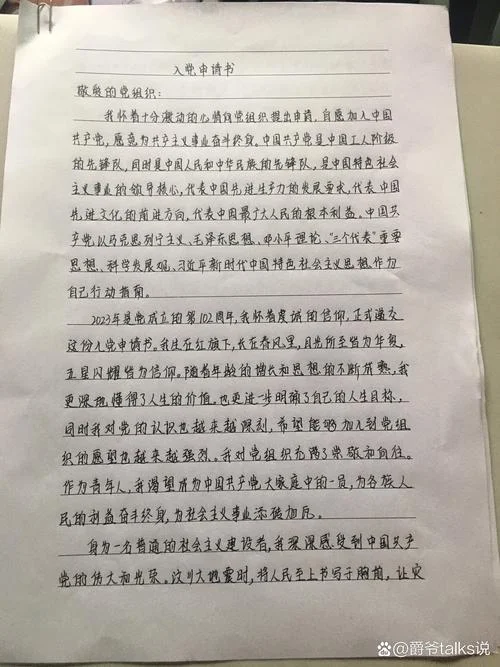 入党申请书
敬爱的党组织：
我怀着十分激动的心情向党组织提出申请，自愿加入中国
共产党，愿意为共产主义事业奋斗终身。中国共产党是中国工人阶级
的先锋队，同时是中国人民和中华民族的先锋队，是中国特色社会
主义事业的领导核心，代表中国先进生产力的发展要求，代表中国
先进文化的前进方向，代表中国最广大人民的根本利益。中国共
产党以马克思列宁主义、毛泽东思想、邓小平理论、“三个代表”重要
思想、科学发展观、习近平新时代中国特色社会主义思想作为
自己行动指南。
2023年是党成立的第102周年，我怀着虔诚的信仰，正式递交
这份入党申请书。我生在红旗下，长在春风里，目光所至皆为华夏，
五星闪耀皆为信仰。随着年龄的增长和思想的不断成熟，我
更深地懂得了人生的价值。也更进一步明确了自己的人生目标，
同时我对党的认识也越来越深刻，希望能够加入到党组
织的愿望也越来越强烈。我对党组织充满了崇敬和向往。
作为青年人，我渴望成为中国共产党大家庭中的一员，为各族人
民的利益奋斗终身，为社会主义事业添砖加瓦。
身为一名普通的社会主义建设者，我深深感受到中国共产
党的伟大和光荣。汶川大地震时，将人民至上书写于胸前，让灾
爵爷talks说